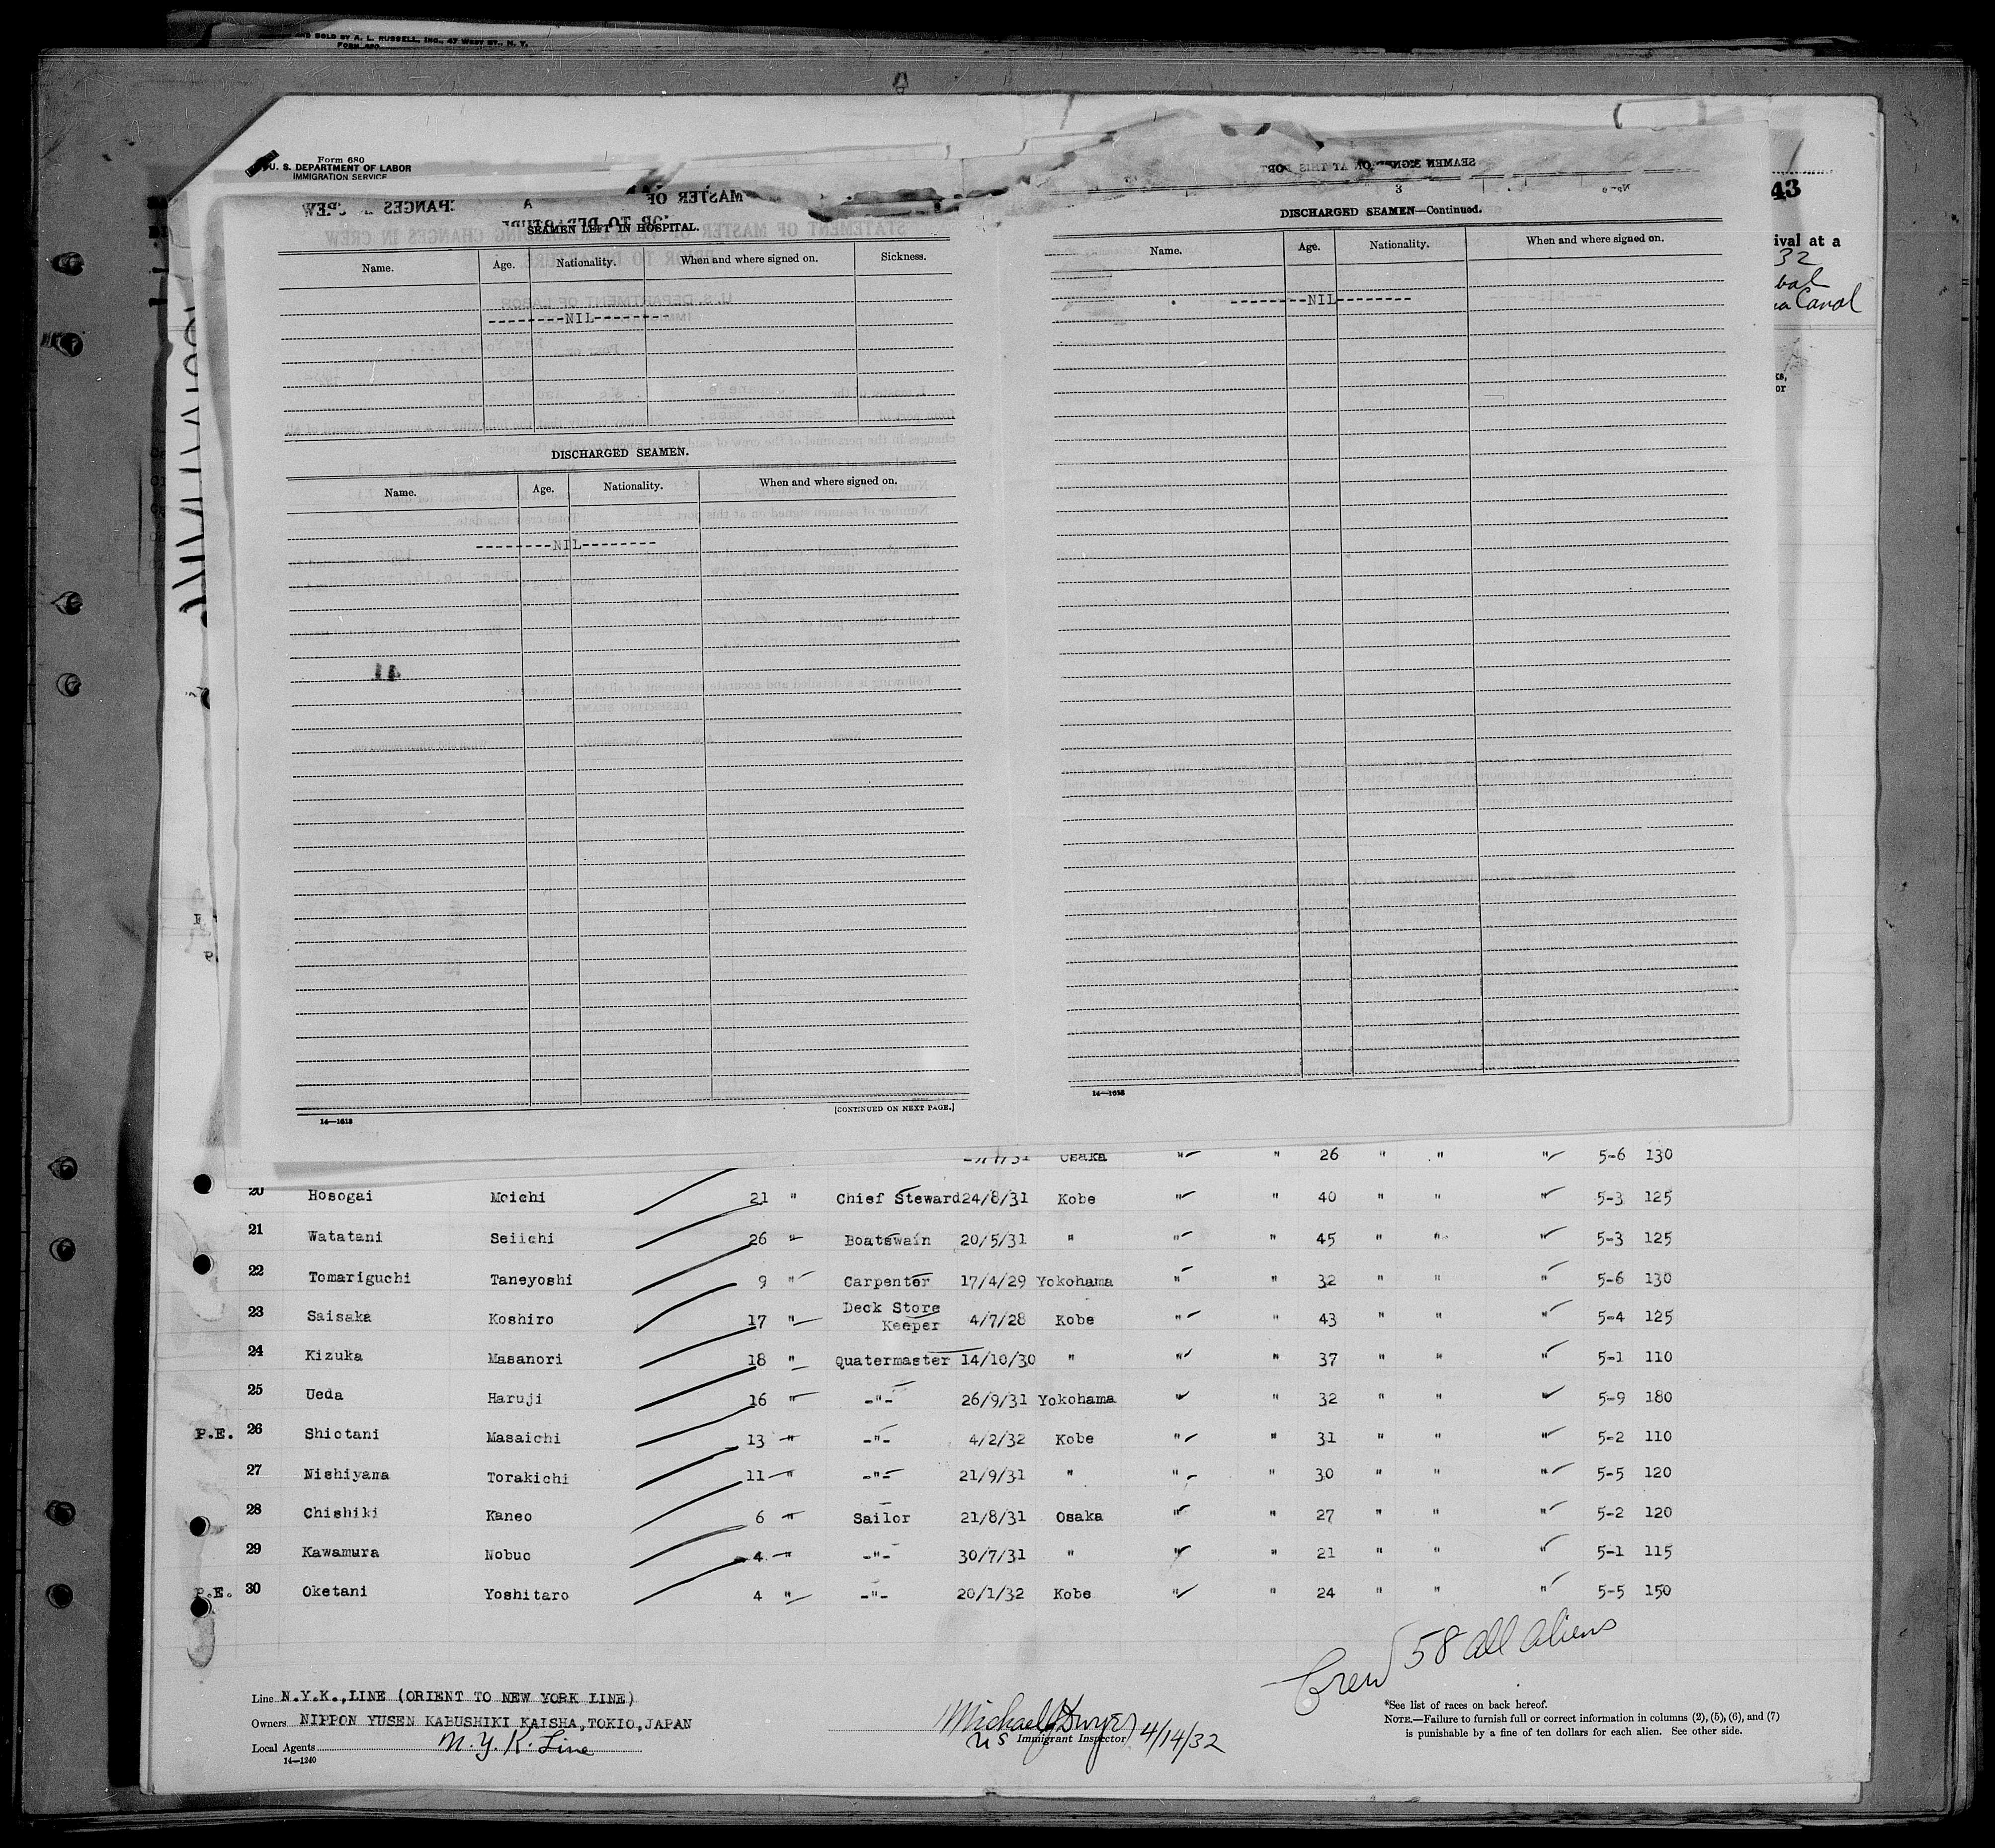 AND SOLD BY A. L. RUSSELL, INC., 47 WEST ST., N. Y.
FORM 680
Form 680
U. S. DEPARTMENT OF LABOR
IMMIGRATION SERVICE
43
ival at a
32
bal
Canal
or
SEAMEN LEFT IN HOSPITAL.
Name. Age. Nationality. When and where signed on. Sickness.
--------NIL--------
DISCHARGED SEAMEN.
Name. Age. Nationality. When and where signed on.
--------NIL--------
41
[CONTINUED ON NEXT PAGE.]
14—1618
DISCHARGED SEAMEN—Continued.
Name. Age. Nationality. When and where signed on.
--------NIL--------
14—1618
Osaka " " 26 " " " 5-6 130
20 Hosogai Moichi 21 " Chief Steward 24/8/31 Kobe " " 40 " " " 5-3 125
21 Watatani Seiichi 26 " Boatswain 20/5/31 " " " 45 " " " 5-3 125
22 Tomariguchi Taneyoshi 9 " Carpenter 17/4/29 Yokohama " " 32 " " " 5-6 130
23 Saisaka Koshiro 17 " Deck Store Keeper 4/7/28 Kobe " " 43 " " " 5-4 125
24 Kizuka Masanori 18 " Quatermaster 14/10/30 " " " 37 " " " 5-1 110
25 Ueda Haruji 16 " -"- 26/9/31 Yokohama " " 32 " " " 5-9 180
P.E. 26 Shiotani Masaichi 13 " -"- 4/2/32 Kobe " " 31 " " " 5-2 110
27 Nishiyama Torakichi 11 " -"- 21/9/31 " " " 30 " " " 5-5 120
28 Chishiki Kaneo 6 " Sailor 21/8/31 Osaka " " 27 " " " 5-2 120
29 Kawamura Nobuo 4 " -"- 30/7/31 " " " 21 " " " 5-1 115
P.E. 30 Oketani Yoshitaro 4 " -"- 20/1/32 Kobe " " 24 " " " 5-5 150
Crew 58 all aliens
Line N.Y.K.,LINE (ORIENT TO NEW YORK LINE)
Owners NIPPON YUSEN KABUSHIKI KAISHA,TOKIO,JAPAN
Local Agents N. Y. K. Line
14—1240
Michael J Dwyer 4/14/32
US Immigrant Inspector
*See list of races on back hereof.
NOTE.—Failure to furnish full or correct information in columns (2), (5), (6), and (7)
is punishable by a fine of ten dollars for each alien. See other side.